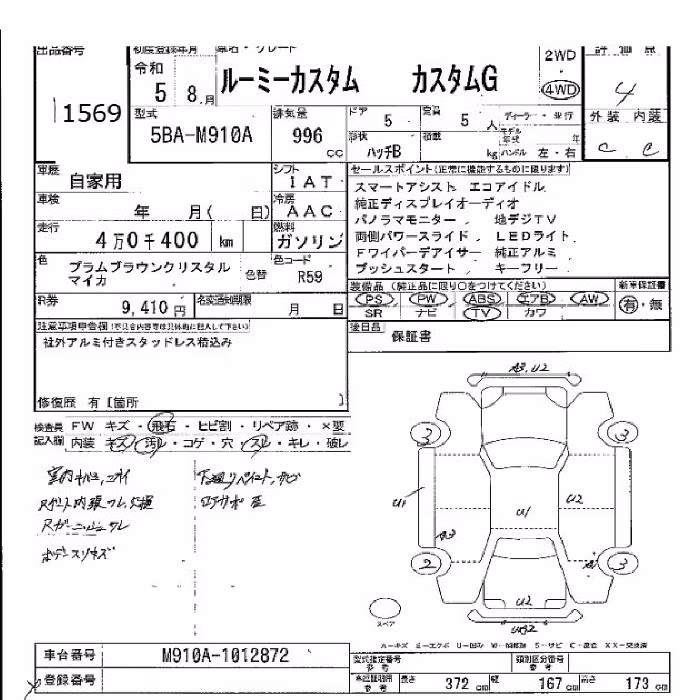 出品番号
1569
初度登録年月
令和
5 8 月
車名・グレード
ルーミーカスタム カスタムG
2WD
4WD
評価点
4
外装 内装
C C
型式
5BA-M910A
排気量
996
cc
ドア 5
定員 5 人
形状 ハッチB
積載 kg
ディーラー・並行
モデル年式 年
ハンドル 左・右
車歴
自家用
シフト
IAT
車検
年 月( 日)
冷房
AAC
走行
4万0千400 km
燃料
ガソリン
色
プラムブラウンクリスタル
マイカ
色替
色コード
R59
R券
9,410円
名変期限
月 日
セールスポイント(正常に機能するものに限ります)
スマートアシスト エコアイドル
純正ディスプレイオーディオ
パノラマモニター 地デジTV
両側パワースライド LEDライト
Fワイパーデアイサー 純正アルミ
プッシュスタート キーフリー
装備品(純正品に限り○をつけてください)
PS PW ABS エアB AW
SR ナビ TV カワ
新車保証書
有・無
後日品
保証書
注意事項申告欄
社外アルミ付きスタッドレス積込み
修復歴 有[箇所 ]
検査員記入欄
FW キズ・飛石・ヒビ割・リペア跡・×要
内装 キズ・汚れ・コゲ・穴・スレ・キレ・破レ
A3, U2
3 3
U1
U2
U1
2 3
U2
スペア
A-キズ E-エクボ U-凹み W-補修跡 S-サビ C-腐食 XX-交換済
車台番号
M910A-1012872
登録番号
型式指定番号
参考
類別区分番号
参考
長さ 372 cm
幅 167 cm
高さ 173 cm